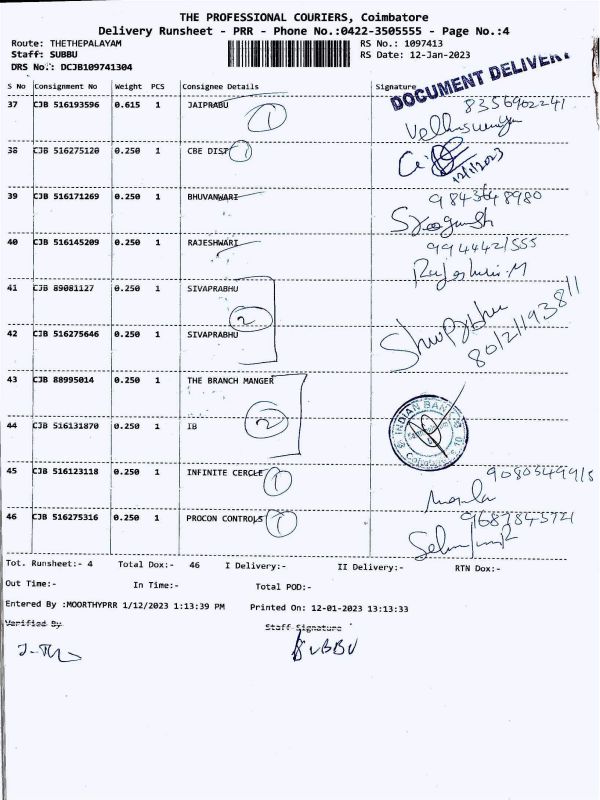 THE PROFESSIONAL COURIERS, Coimbatore
Delivery Runsheet - PRR - Phone No.:0422-3505555 - Page No.:4
Route: THETHEPALAYAM RS No.: 1097413
Staff: SUBBU RS Date: 12-Jan-2023
DRS No.: DCJB109741304
DOCUMENT DELIVERY
S No Consignment No Weight PCS Consignee Details Signature
37 CJB 516193596 0.615 1 JAIPRABU 1 8356902241
38 CJB 516275120 0.250 1 CBE DIST 1
12/1/2023
39 CJB 516171269 0.250 1 BHUVANWARI 9843648980
40 CJB 516145209 0.250 1 RAJESHWARI 9944421555
Rajeshwari.M
41 CJB 89081127 0.250 1 SIVAPRABHU
2
42 CJB 516275646 0.250 1 SIVAPRABHU
43 CJB 88995014 0.250 1 THE BRANCH MANGER
2
44 CJB 516131870 0.250 1 IB
INDIAN BANK
45 CJB 516123118 0.250 1 INFINITE CERCLE 1
46 CJB 516275316 0.250 1 PROCON CONTROLS 1 9687845721
Tot. Runsheet:- 4 Total Dox:- 46 I Delivery:- II Delivery:- RTN Dox:-
Out Time:- In Time:- Total POD:-
Entered By :MOORTHYPRR 1/12/2023 1:13:39 PM Printed On: 12-01-2023 13:13:33
Verified By Staff Signature
SUBBU